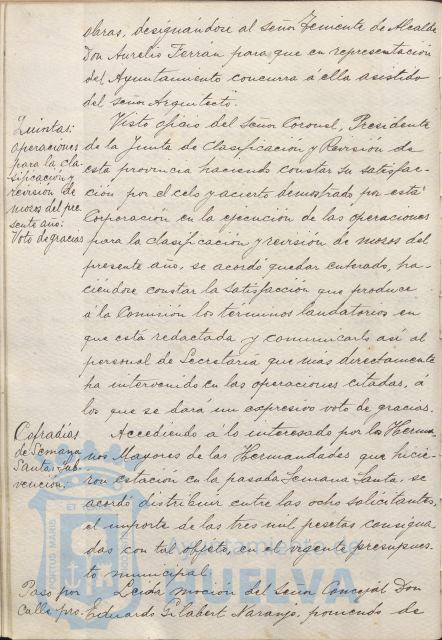 obras, designándose al señor Teniente de Alcalde
Don Aurelio Ferrán para que en representación
del Ayuntamiento concurra á ella asistido
del señor Arquitecto.
Quintas:
operaciones
para la cla-
sificación y
revisión de
mozos del pre-
sente año:
Voto de gracias
Visto oficio del Señor Coronel, Presidente
de la Junta de Clasificación y Revisión de
esta provincia haciendo constar su satisfac-
ción por el celo y acierto demostrado por esta
Corporación en la ejecución de las operaciones
para la clasificación y revisión de mozos del
presente año, se acordó quedar enterado, ha-
ciéndose constar la satisfacción que produce
á la Comisión los términos laudatorios en
que está redactada y comunicarlo así al
personal de Secretaría que más directamente
ha intervenido en las operaciones citadas, a
los que se dará un expresivo voto de gracias.
Cofradías
de Semana
Santa: Sub-
vención.
Accediendo á lo interesado por los Herma-
nos Mayores de las Hermandades que hicie-
ron estación en la pasada Semana Santa, se
acordó distribuir entre las ocho solicitantes,
el importe de las tres mil pesetas consigna-
das con tal objeto, en el vigente presupues-
to municipal.
Paso por
Calle pro-
Leida moción del Señor Concejal Don
Eduardo Gilabert Naranjo, poniendo de
PORTUS MARIS
ET
Ayuntamiento de
HUELVA